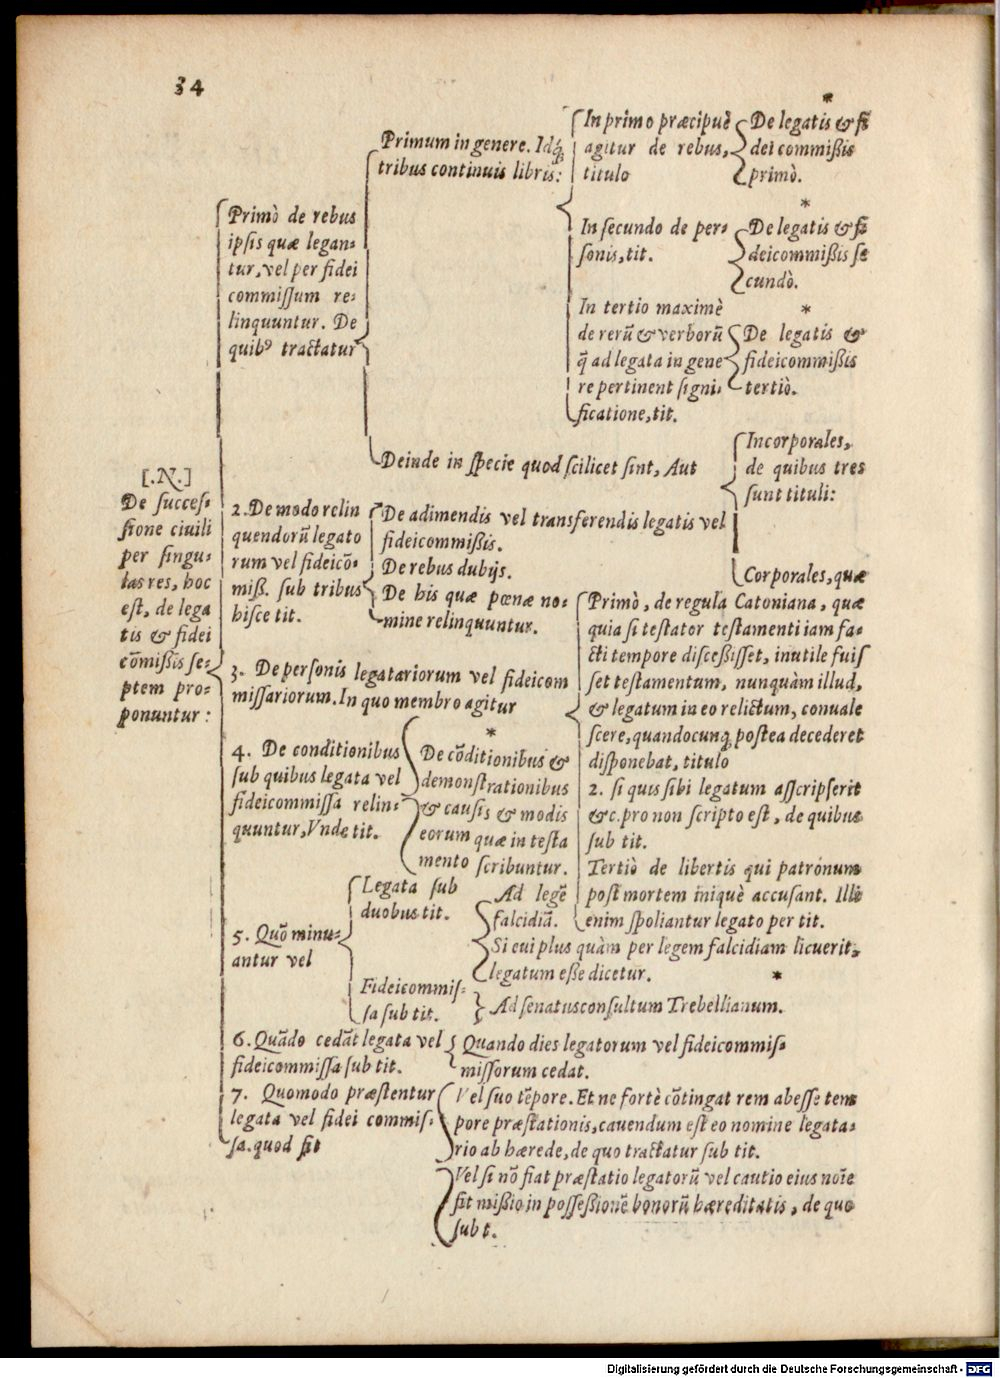 34
[.N.]
De succes-
sione ciuili
per singu-
las res, hoc
est, de lega
tis & fidei
cōmißis se-
ptem pro-
ponuntur:
Primò de rebus
ipsis quæ legan-
tur, vel per fidei
commissum re-
linquuntur. De
quibꝰ tractatur
Primum in genere. Idq́;
tribus continuis libris:
In primo præcipuè
agitur de rebus,
titulo
*
De legatis & fi
deicommißis
primò.
In secundo de per-
sonis, tit.
*
De legatis & fi
deicommißis se
cundò.
In tertio maximè
de rerū & verborū
q̄ ad legata in gene
re pertinent signi-
ficatione, tit.
*
De legatis &
fideicommißis
tertiò.
Deinde in specie quod scilicet sint, Aut
Incorporales,
de quibus tres
sunt tituli:
Corporales, quæ
2. De modo relin
quendorū legato
rum vel fideicō-
miß. sub tribus
hisce tit.
De adimendis vel transferendis legatis vel
fideicommißis.
De rebus dubijs.
De his quæ pœnæ no-
mine relinquuntur.
3. De personis legatariorum vel fideicom
missariorum. In quo membro agitur
Primò, de regula Catoniana, quæ
quia si testator testamenti iam fa-
cti tempore disceßisset, inutile fuis
set testamentum, nunquàm illud,
& legatum in eo relictum, conuale
scere, quandocunq; postea decederet
disponebat, titulo
2. si quis sibi legatum asscripserit
&c. pro non scripto est, de quibus
sub tit.
Tertiò de libertis qui patronum
post mortem iniquè accusant. Illi
enim spoliantur legato per tit.
4. De conditionibus
sub quibus legata vel
fideicommissa relin-
quuntur, Vnde tit.
*
De cōditionibus &
demonstrationibus
& causis & modis
eorum quæ in testa
mento scribuntur.
5. Quō minu-
antur vel
Legata sub
duobus tit.
Ad legē
falcidiā.
Si cui plus quàm per legem falcidiam licuerit,
legatum eße dicetur.
Fideicommis-
sa sub tit.
*
Ad senatusconsultum Trebellianum.
6. Quādo cedāt legata vel
fideicommissa sub tit.
Quando dies legatorum vel fideicommis-
missorum cedat.
7. Quomodo præstentur
legata vel fidei commis-
sa. quod fit
Vel suo tēpore. Et ne fortè cōtingat rem abesse tem
pore præstationis, cauendum est eo nomine legata-
rio ab hærede, de quo tractatur sub tit.
Vel si nō fiat præstatio legatorū vel cautio eius noīe
fit mißio in posseßionē bonorū hæreditatis, de quo
sub t.
Digitalisierung gefördert durch die Deutsche Forschungsgemeinschaft - DFG